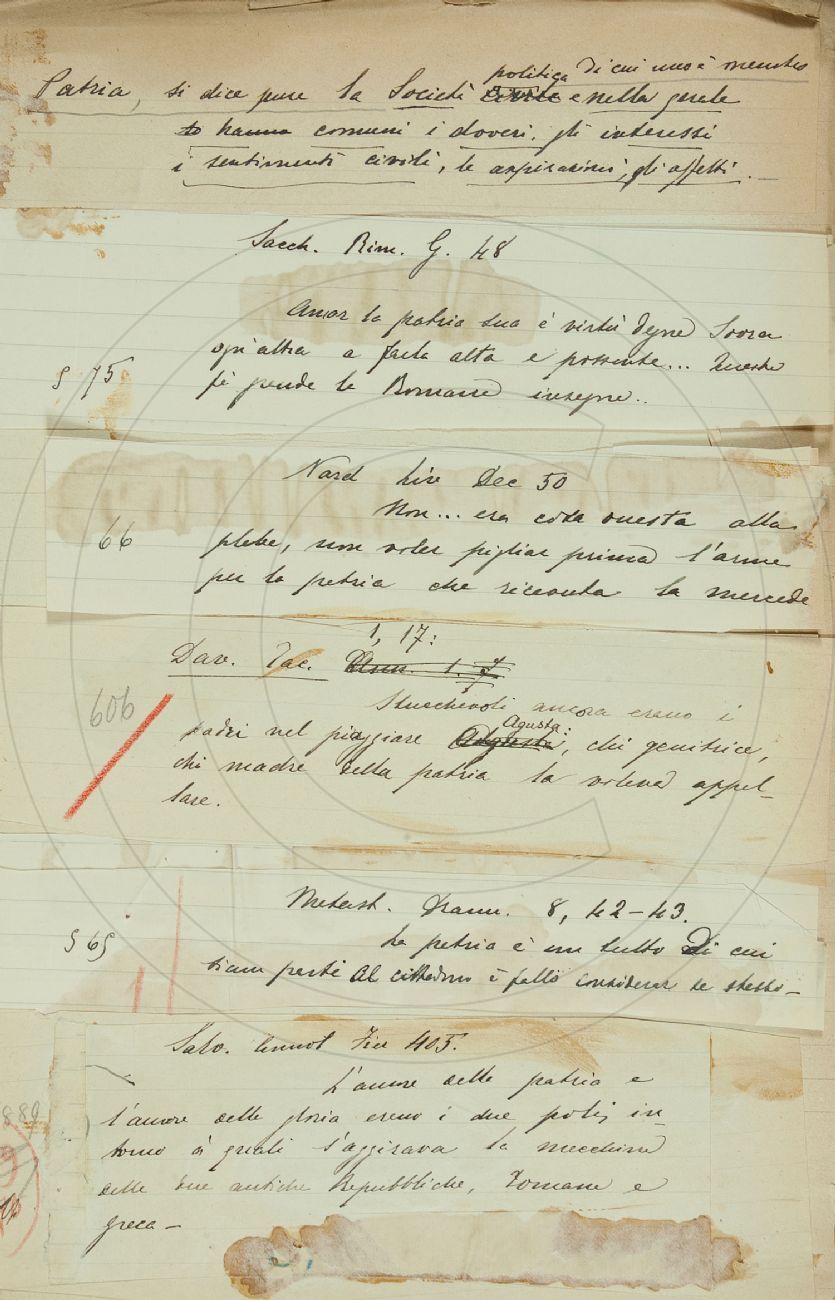 politica di cui uno è membro
Patria, si dice pure la Società civile e nella quale
to hanno comuni i doveri, gli interessi
i sentimenti civili, le aspirazioni, gli affetti.
Sacch. Rim. G. 48
Amar la patria sua è virtù degna Sovra
ogn'altra a farla alta e possente... Questa
fè grande le Romane insegne..
§ 75
Nard Liv. Dec 50
Non... era cosa onesta alla
plebe, non voler pigliar prima l'arme
per la patria che ricevuta la mercede
66
1, 17:
Dav. Tac. Ann. 1. 7
Stucchevoli ancora erano i
padri nel piaggiare Augusta, chi genitrice,
Agusta:
chi madre della patria la voleva appel-
lare.
606
Metast. Dramm. 8, 42-43.
La patria è un tutto Di cui
siam parti Al cittadino è fallo Considerar se stesso-
§ 65
Salv. Annot Fier 405.
L'amore della patria e
l'amore della gloria erano i due poli, in-
torno a' quali s'aggirava la macchina
delle due antiche Repubbliche, Romana e
greca-
889